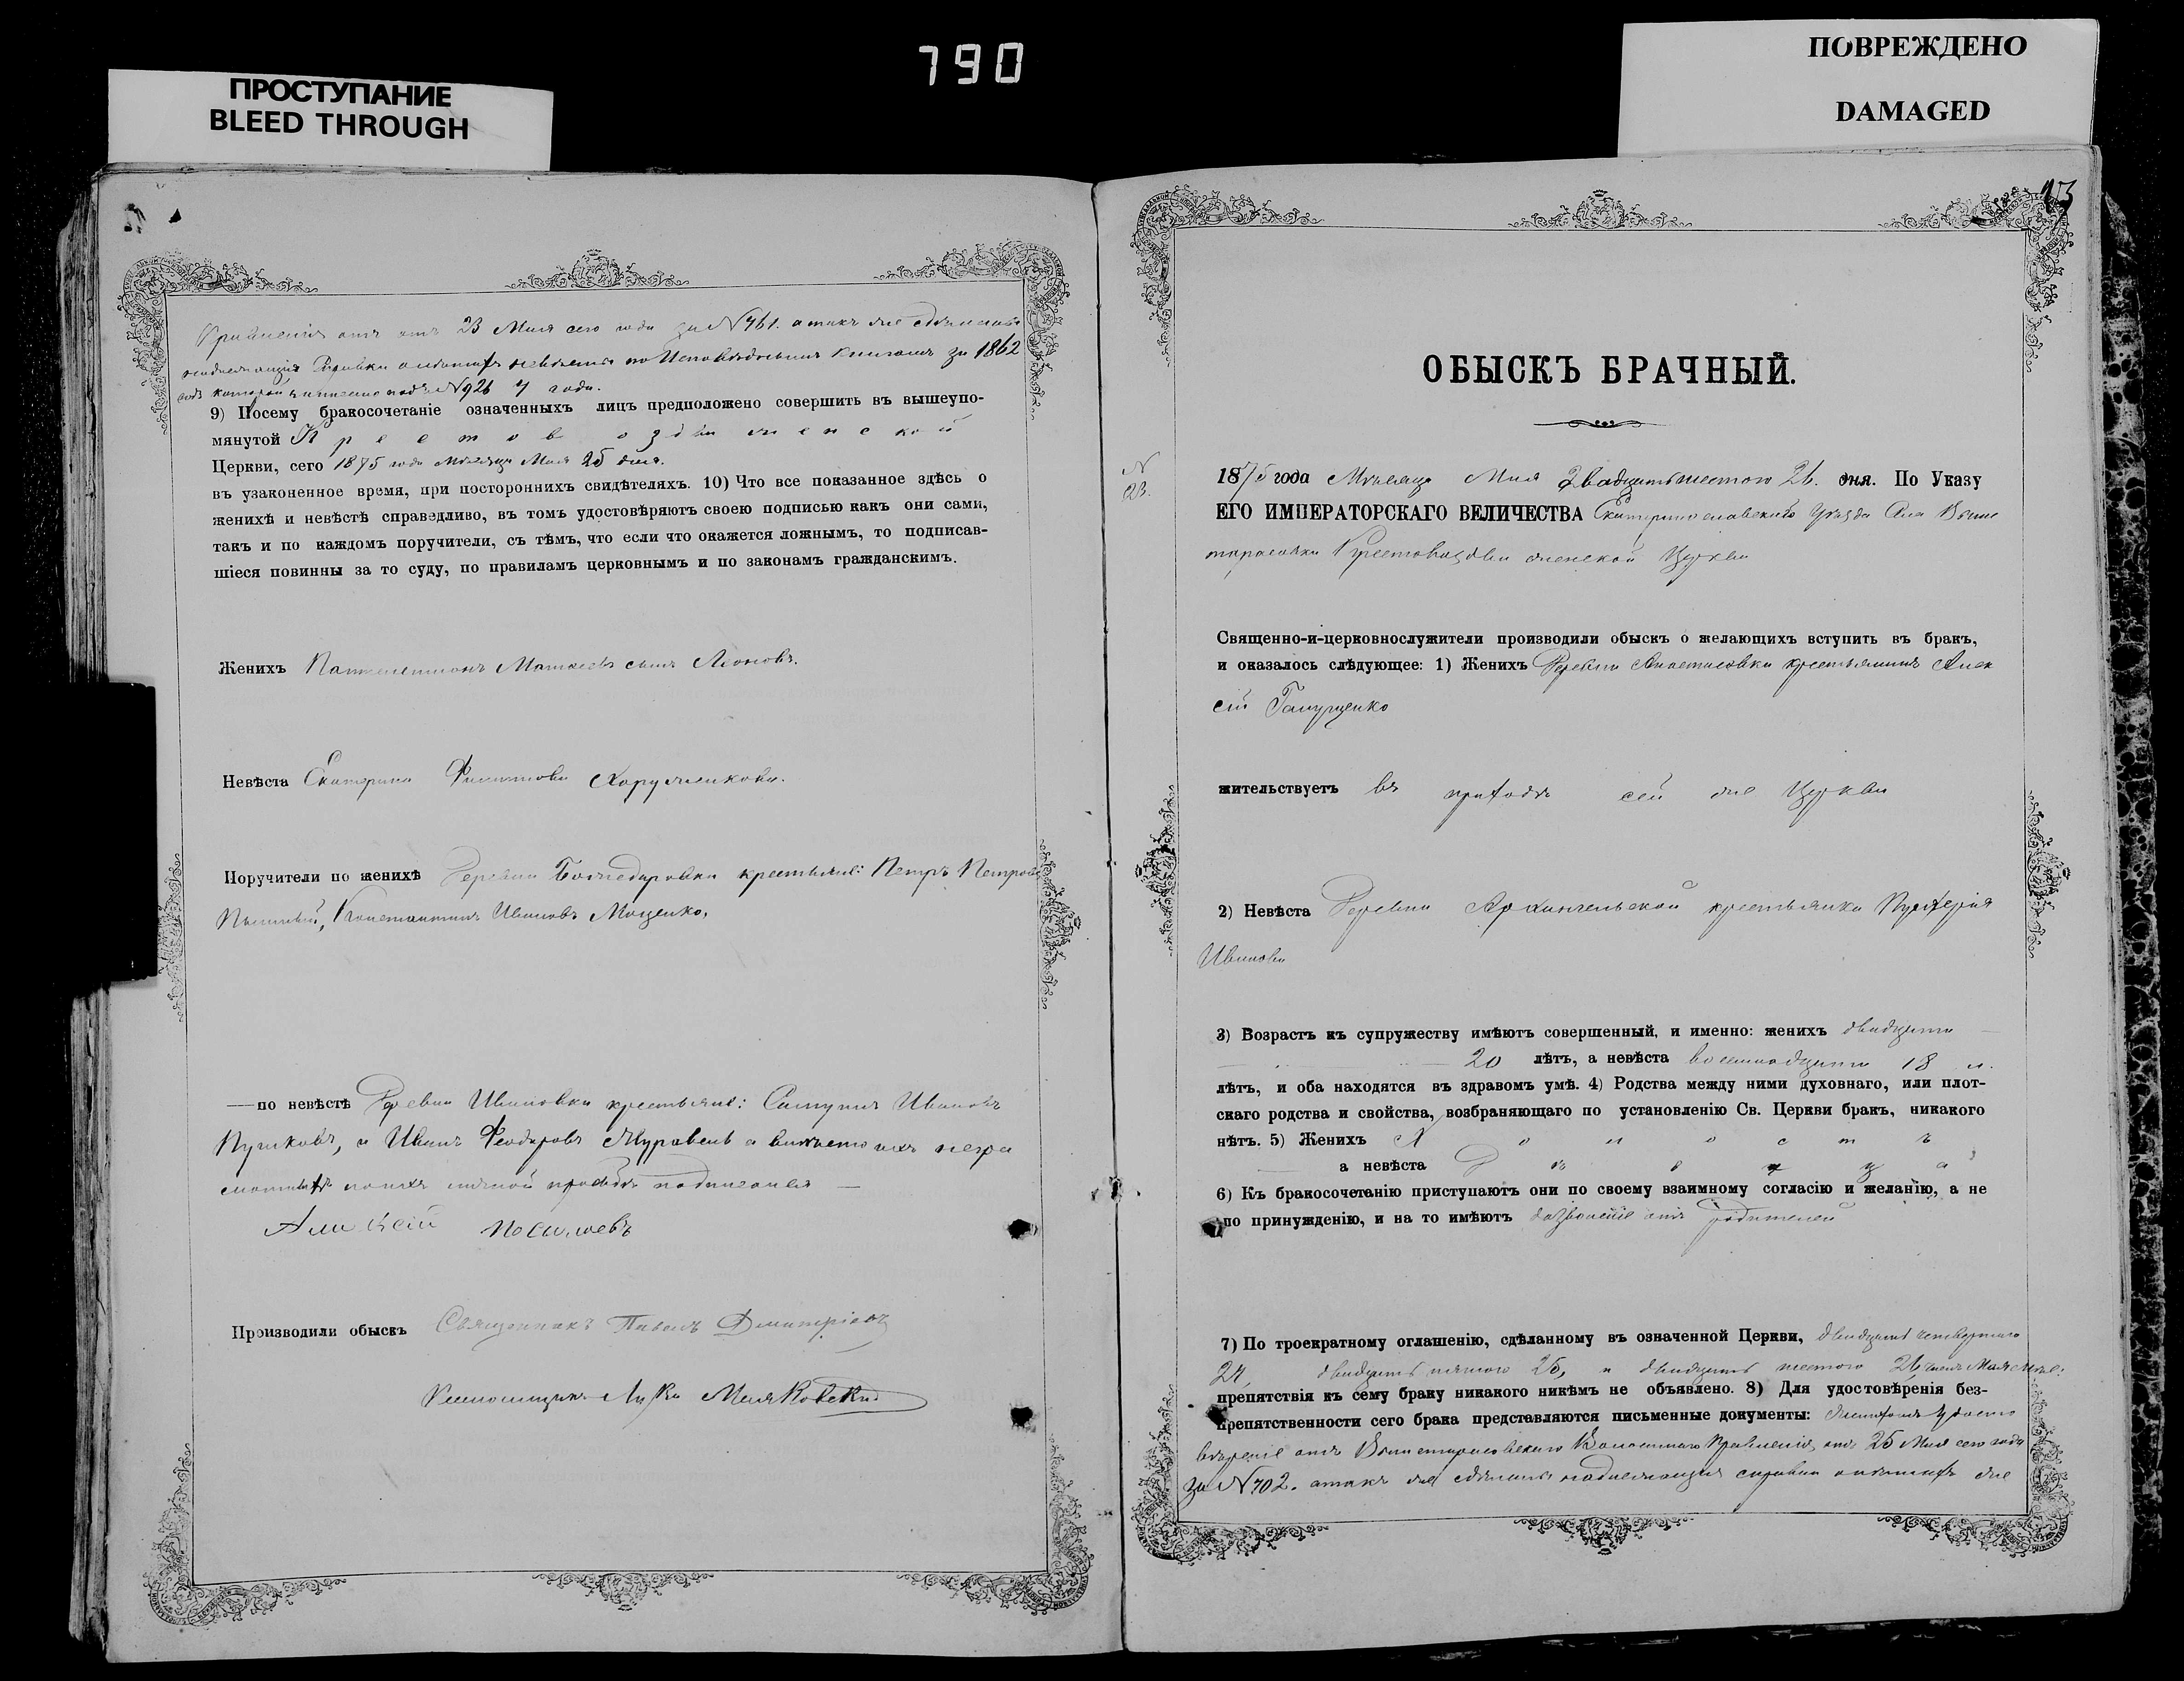 790
ПРОСТУПАНИЕ
BLEED THROUGH
ПОВРЕЖДЕНО
DAMAGED
Правленія отъ 23 Мая сего года за №761. а такъ же сдѣланы
надлежащія справки о лѣтахъ невѣсты по Исповѣднымъ книгамъ за 1862
годъ которой записано подъ №926 7 года.
9) Посему бракосочетаніе означенныхъ лицъ предположено совершить въ вышеупо-
мянутой Крестовоздвиженской
Церкви, сего 1875 года Мѣсяца Мая 25 дня.
въ узаконенное время, при постороннихъ свидѣтеляхъ. 10) Что все показанное здѣсь о
женихѣ и невѣстѣ справедливо, въ томъ удостовѣряютъ своею подписью какъ они сами,
такъ и по каждомъ поручители, съ тѣмъ, что если что окажется ложнымъ, то подписав-
шіеся повинны за то суду, по правиламъ церковнымъ и по законамъ гражданскимъ.
Женихъ Пантелеимонъ сынъ Леоновъ.
Невѣста Екатерина Филиппова
Поручители по женихѣ Деревни Богодаровки крестьяне: Петръ Петровъ
Константинъ Ивановъ Мощенко,
—по невѣстѣ Деревни Ивановки крестьяне: Ивановъ
Пушковъ, а Иванъ Феодоровъ Журавель а вмѣсто ихъ негра
мотныхъ по ихъ личной прозьбѣ подписался —
Алексѣй
Производили обыскъ Священникъ Павелъ Дмитріевъ
Псаломщикъ Лука
13
ОБЫСКЪ БРАЧНЫЙ.
N
23.
1875 года Мѣсяца Мая Двадцать шестого 26. дня. По Указу
ЕГО ИМПЕРАТОРСКАГО ВЕЛИЧЕСТВА Екатеринославскаго Уѣзда Села Выше
тарасовки Крестовоздвиженской Церкви
Священно-и-церковнослужители производили обыскъ о желающихъ вступить въ бракъ,
и оказалось слѣдующее: 1) Женихъ Деревни Анастасовки крестьянинъ Алек
сѣй Ганущенко
жительствуетъ въ приходѣ сей же Церкви
2) Невѣста Деревни Архангельской крестьянка Пулхерія
Иванова
3) Возрастъ къ супружеству имѣютъ совершенный, и именно: женихъ двадцати
20 лѣтъ, а невѣста восемнадцати 18 л.
лѣтъ, и оба находятся въ здравомъ умѣ. 4) Родства между ними духовнаго, или плот-
скаго родства и свойства, возбраняющаго по установленію Св. Церкви бракъ, никакого
нѣтъ. 5) Женихъ Холостъ
а невѣста Дѣвица
6) Къ бракосочетанію приступаютъ они по своему взаимному согласію и желанію, а не
по принужденію, и на то имѣютъ дозволеніе отъ родителей
7) По троекратному оглашенію, сдѣланному въ означенной Церкви, двадцать четвертого
24, двадцать пятого 25, и двадцать шестого 26 Мая
препятствія къ сему браку никакого никѣмъ не объявлено. 8) Для удостовѣренія без-
препятственности сего брака представляются письменные документы: Удосто
вѣреніе отъ Вышетарасовскаго Волостнаго Правленія отъ 25 Мая сего года
за №702. а такъ же сдѣланы надлежащія справки о лѣтахъ же